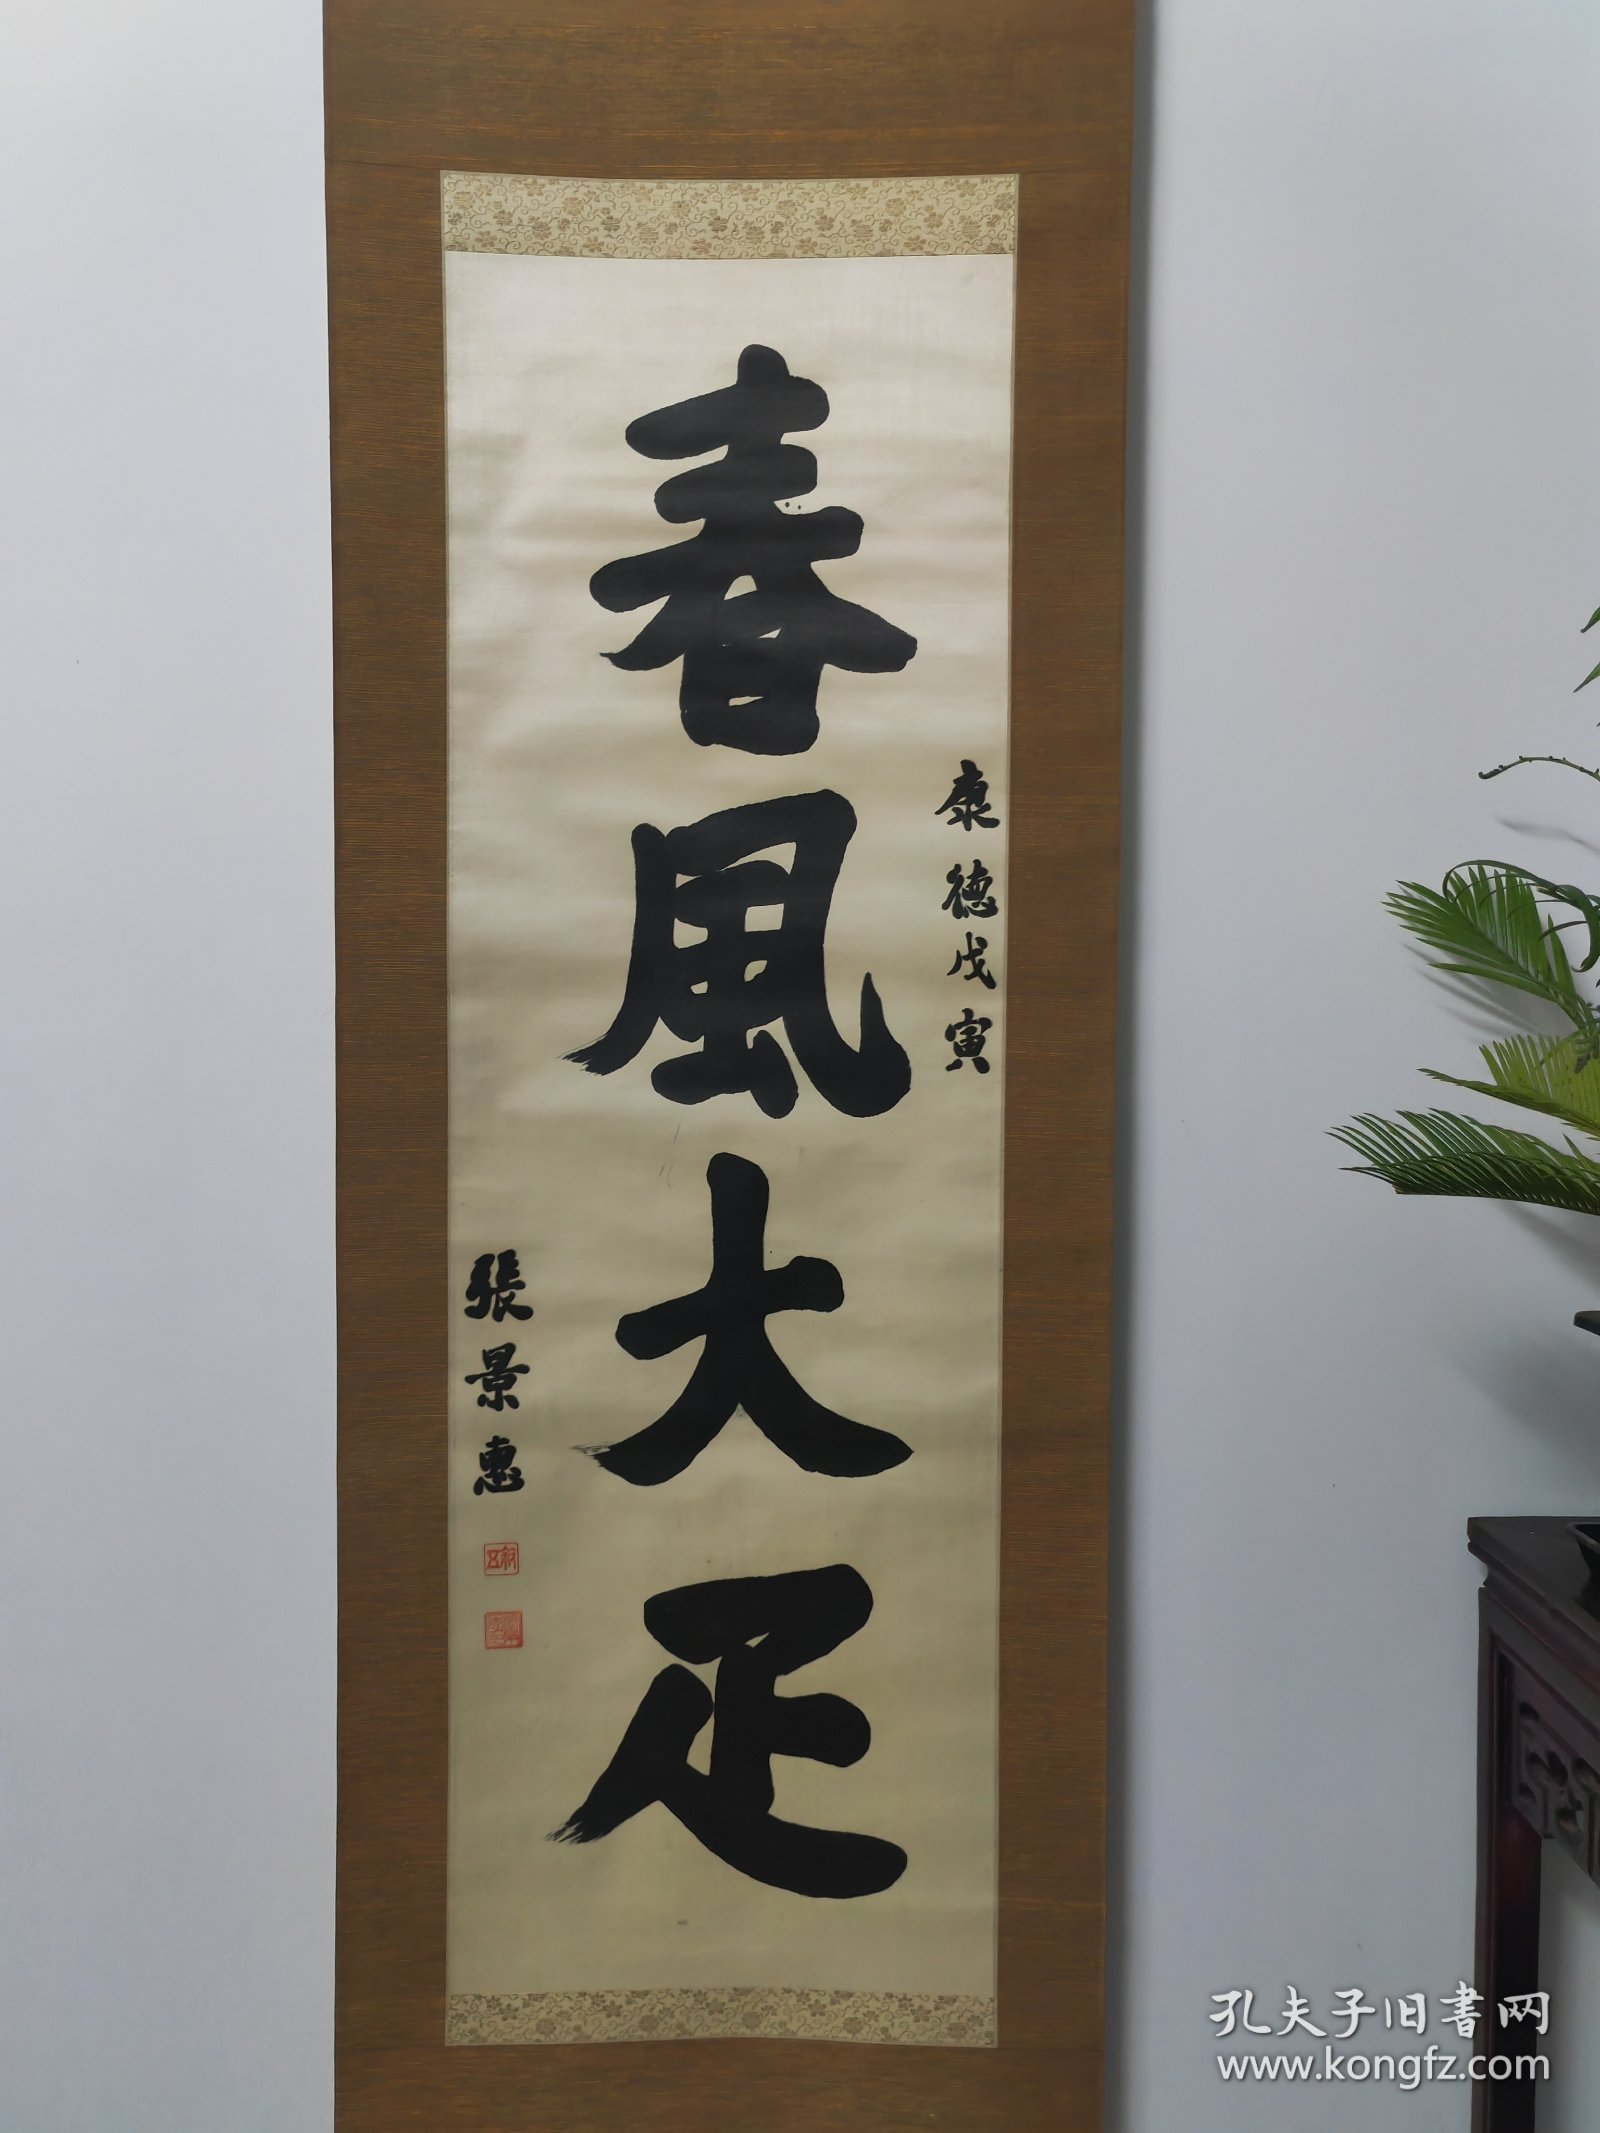 康德戊寅
春風大疋
張景惠
叙五
孔夫子旧書网
www.kongfz.com